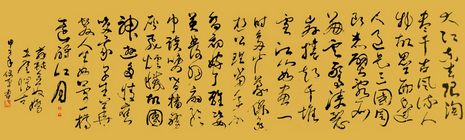 大江东去浪淘
尽千古风流人
物故垒西边
人道是三国周
郎赤壁乱石
崩云惊涛裂
岸卷起千堆
雪江山如画一
时多少豪杰遥
想公瑾当年小
乔初嫁了雄姿
英发羽扇纶
巾谈笑间樯橹
灰飞烟灭故国
神游多情应
笑我早生华
发人生如梦一樽
还酹江月